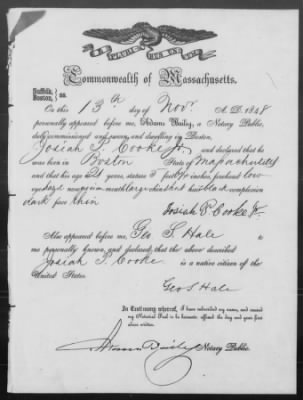 E PLURIBUS UNUM
Commonwealth of Massachusetts.
Suffolk,
Boston, } ss.
On this 13th day of Novr. A. D. 1848
personally appeared before me, Adams Baily, a Notary Public,
duly commissioned and sworn, and dwelling in Boston,
Josiah P. Cooke Jr. and declared that he
was born in Boston State of Massachusetts
and that his age 21 years, stature 5 feet inches forehead low
eyes nose mouth large chin hair black complexion
dark face thin
Josiah P. Cooke Jr.
Also appeared before me, Geo S. Hale to
me personally known, and declared, that the above described
Josiah P. Cooke is a native citizen of the
United States.
Geo S Hale
In Testimony whereof, I have subscribed my name, and caused
my Notarial Seal to be hereunto affixed the day and year first
above written.
Adams Baily Notary Public.